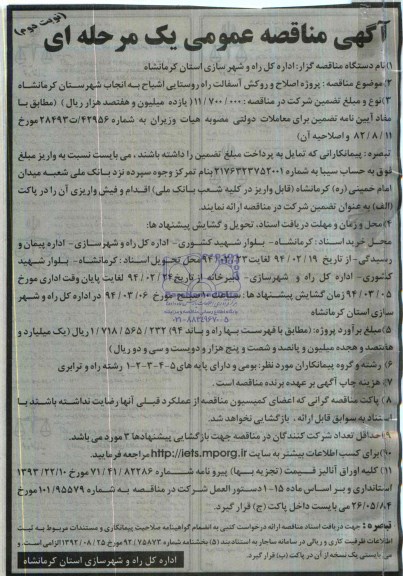 (نوبت دوم)
آگهی مناقصه عمومی یک مرحله ای
۱)نام دستگاه مناقصه گزار: اداره کل راه و شهرسازی استان کرمانشاه
۲)موضوع مناقصه : پروژه اصلاح و روکش آسفالت راه روستایی اشیاح به انجاب شهرستان کرمانشاه
۳)نوع و مبلغ تضمین شرکت در مناقصه : ۱۱/۷۰۰/۰۰۰ (یازده میلیون و هفتصد هزار ریال ) (مطابق با
مفاد آیین نامه تضمین برای معاملات دولتی مصوبه هیات وزیران به شماره ۴۲۹۵۶/ت۲۸۴۹۳ مورخ
۸۲/۸/۱۱ و اصلاحیه آن)
تبصره : پیمانکارانی که تمایل به پرداخت مبلغ تضمین را داشته باشند ، می بایست نسبت به واریز مبلغ
فوق به حساب سیبا به شماره ۲۱۷۶۳۲۳۷۵۲۰۰۱ بنام تمرکز وجوه سپرده نزد بانک ملی شعبه میدان
امام خمینی (ره) کرمانشاه (قابل واریز در کلیه شعب بانک ملی) اقدام و فیش واریزی آن را در پاکت
(الف) به عنوان تضمین شرکت در مناقصه ارائه نمایند.
۴)محل و زمان و مهلت دریافت اسناد، تحویل و گشایش پیشنهاد ها:
محل خرید اسناد : کرمانشاه- بلوار شهید کشوری- اداره کل راه و شهرسازی- اداره پیمان و
رسیدگی- از تاریخ ۹۴/۰۲/۱۹ لغایت ۹۴/۰۲/۲۳ محل تحویل اسناد : کرمانشاه- بلوار شهید
کشوری- اداره کل راه و شهرسازی- دبیرخانه از تاریخ ۹۴/۰۲/۲۴ لغایت پایان وقت اداری مورخ
۹۴/۰۳/۰۵ زمان گشایش پیشنهاد ها : ساعت ۱۰ صبح مورخ ۹۴/۰۳/۰۶ در اداره کل راه و شهر
سازی استان کرمانشاه
۰۲۱-۸۸۳۴۹۶۷۰-۵
۵)مبلغ برآورد پروژه: (مطابق با فهرست بها راه و باند ۹۴) ۱/۷۱۸/۵۶۵/۲۳۲ ریال (یک میلیارد و
هفتصد و هجده میلیون و پانصد و شصت و پنج هزار و دویست و سی و دو ریال)
۶) رشته و گروه پیمانکاران مورد نظر: بومی و دارای پایه های ۵-۴-۳-۲-۱ رشته راه و ترابری
۷) هزینه چاپ آگهی بر عهده برنده مناقصه است .
۸) پاکت مناقصه گرانی که اعضای کمیسیون مناقصه از عملکرد قبلی آنها رضایت نداشته باشند با
استناد به سوابق قابل ارائه ، بازگشایی نخواهد شد.
۹)حداقل تعداد شرکت کنندگان در مناقصه جهت بازگشایی پیشنهادها ۳ مورد می باشد.
۱۰)برای کسب اطلاعات بیشتر به سایت http://iets.mporg.ir مراجعه فرمایید.
۱۱) کلیه اوراق آنالیز قیمت (تجزیه بها) پیرو نامه شماره ۷۱/۴۱/۸۲۲۸۶ مورخ ۱۳۹۳/۲۲/۱۰
استانداری و بر اساس ماده ۱۵-۱ دستور العمل شرکت در مناقصه به شماره ۱۰۱/۹۵۵۷۹ مورخ
۲۶/۰۵/۸۴ می بایست داخل پاکت (ج) قرار گیرد.
تبصره : جهت دریافت اسناد مناقصه ارائه درخواست کتبی به انضمام گواهینامه صلاحیت پیمانکاری و مستندات مربوط به ثبت
اطلاعات ظرفیت کاری و ریالی در سامانه ساجار به استناد بند (۵) بخشنامه شماره ۹۲/۷۵۸۷۳ مورخ ۱۳۹۲/۰۸/۲۵ الزامی است . و
می بایستی یک نسخه از آن در پاکت (ب) قرار گیرد.
اداره کل راه و شهرسازی استان کرمانشاه